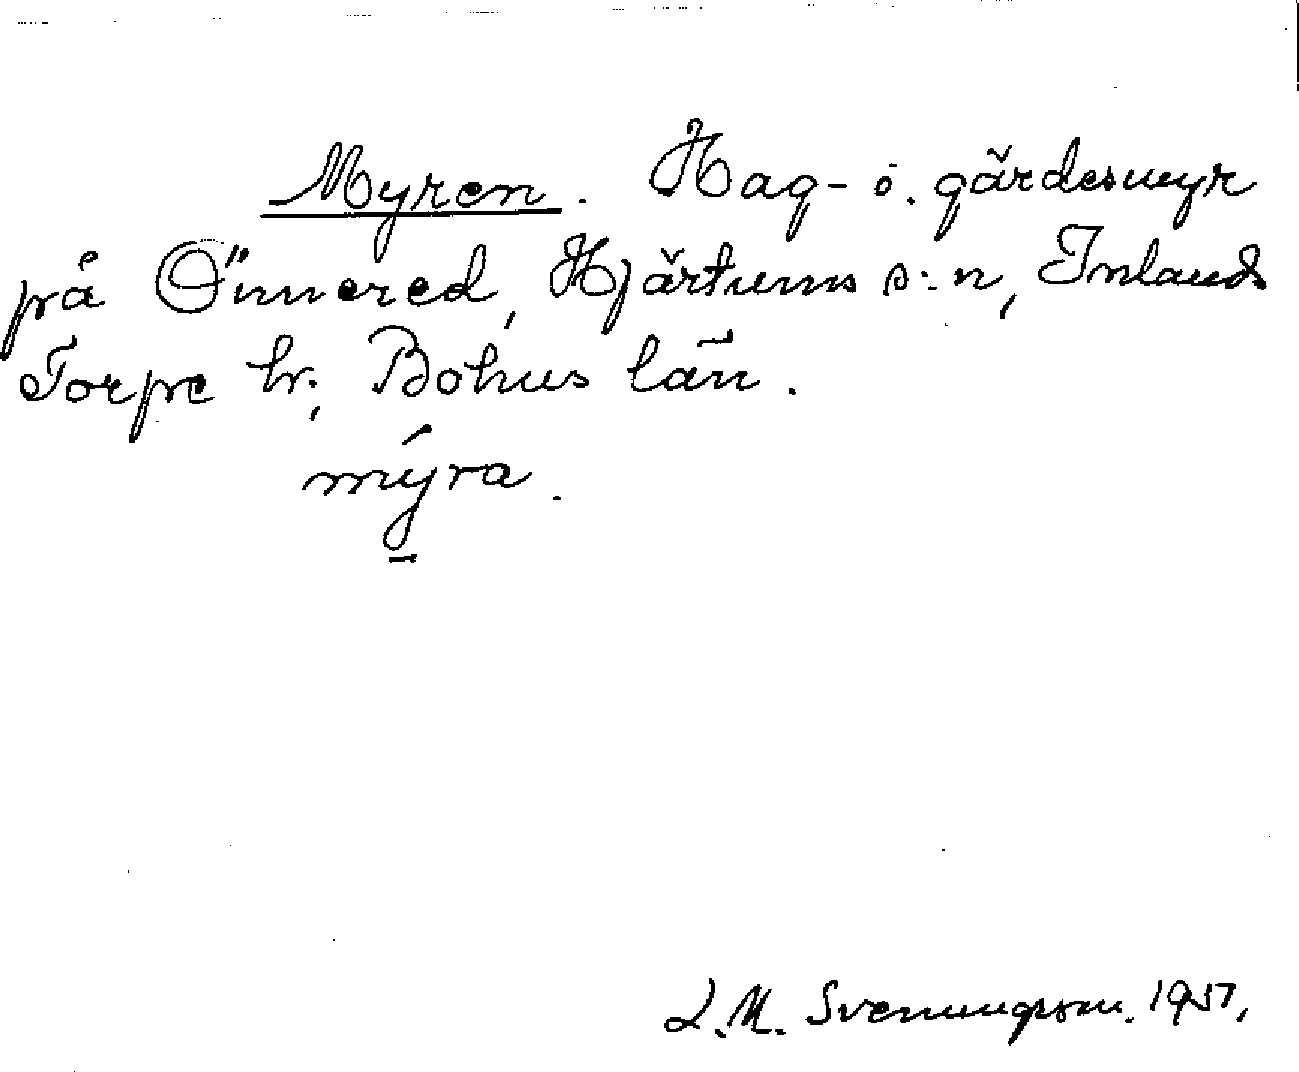 Myren. Hag- o. gärdesmyr
på Önnered, Hjärtums s:n, Inlands
Torpe hr, Bohus län.
mýra.
L.M. Svenungsson. 1937.